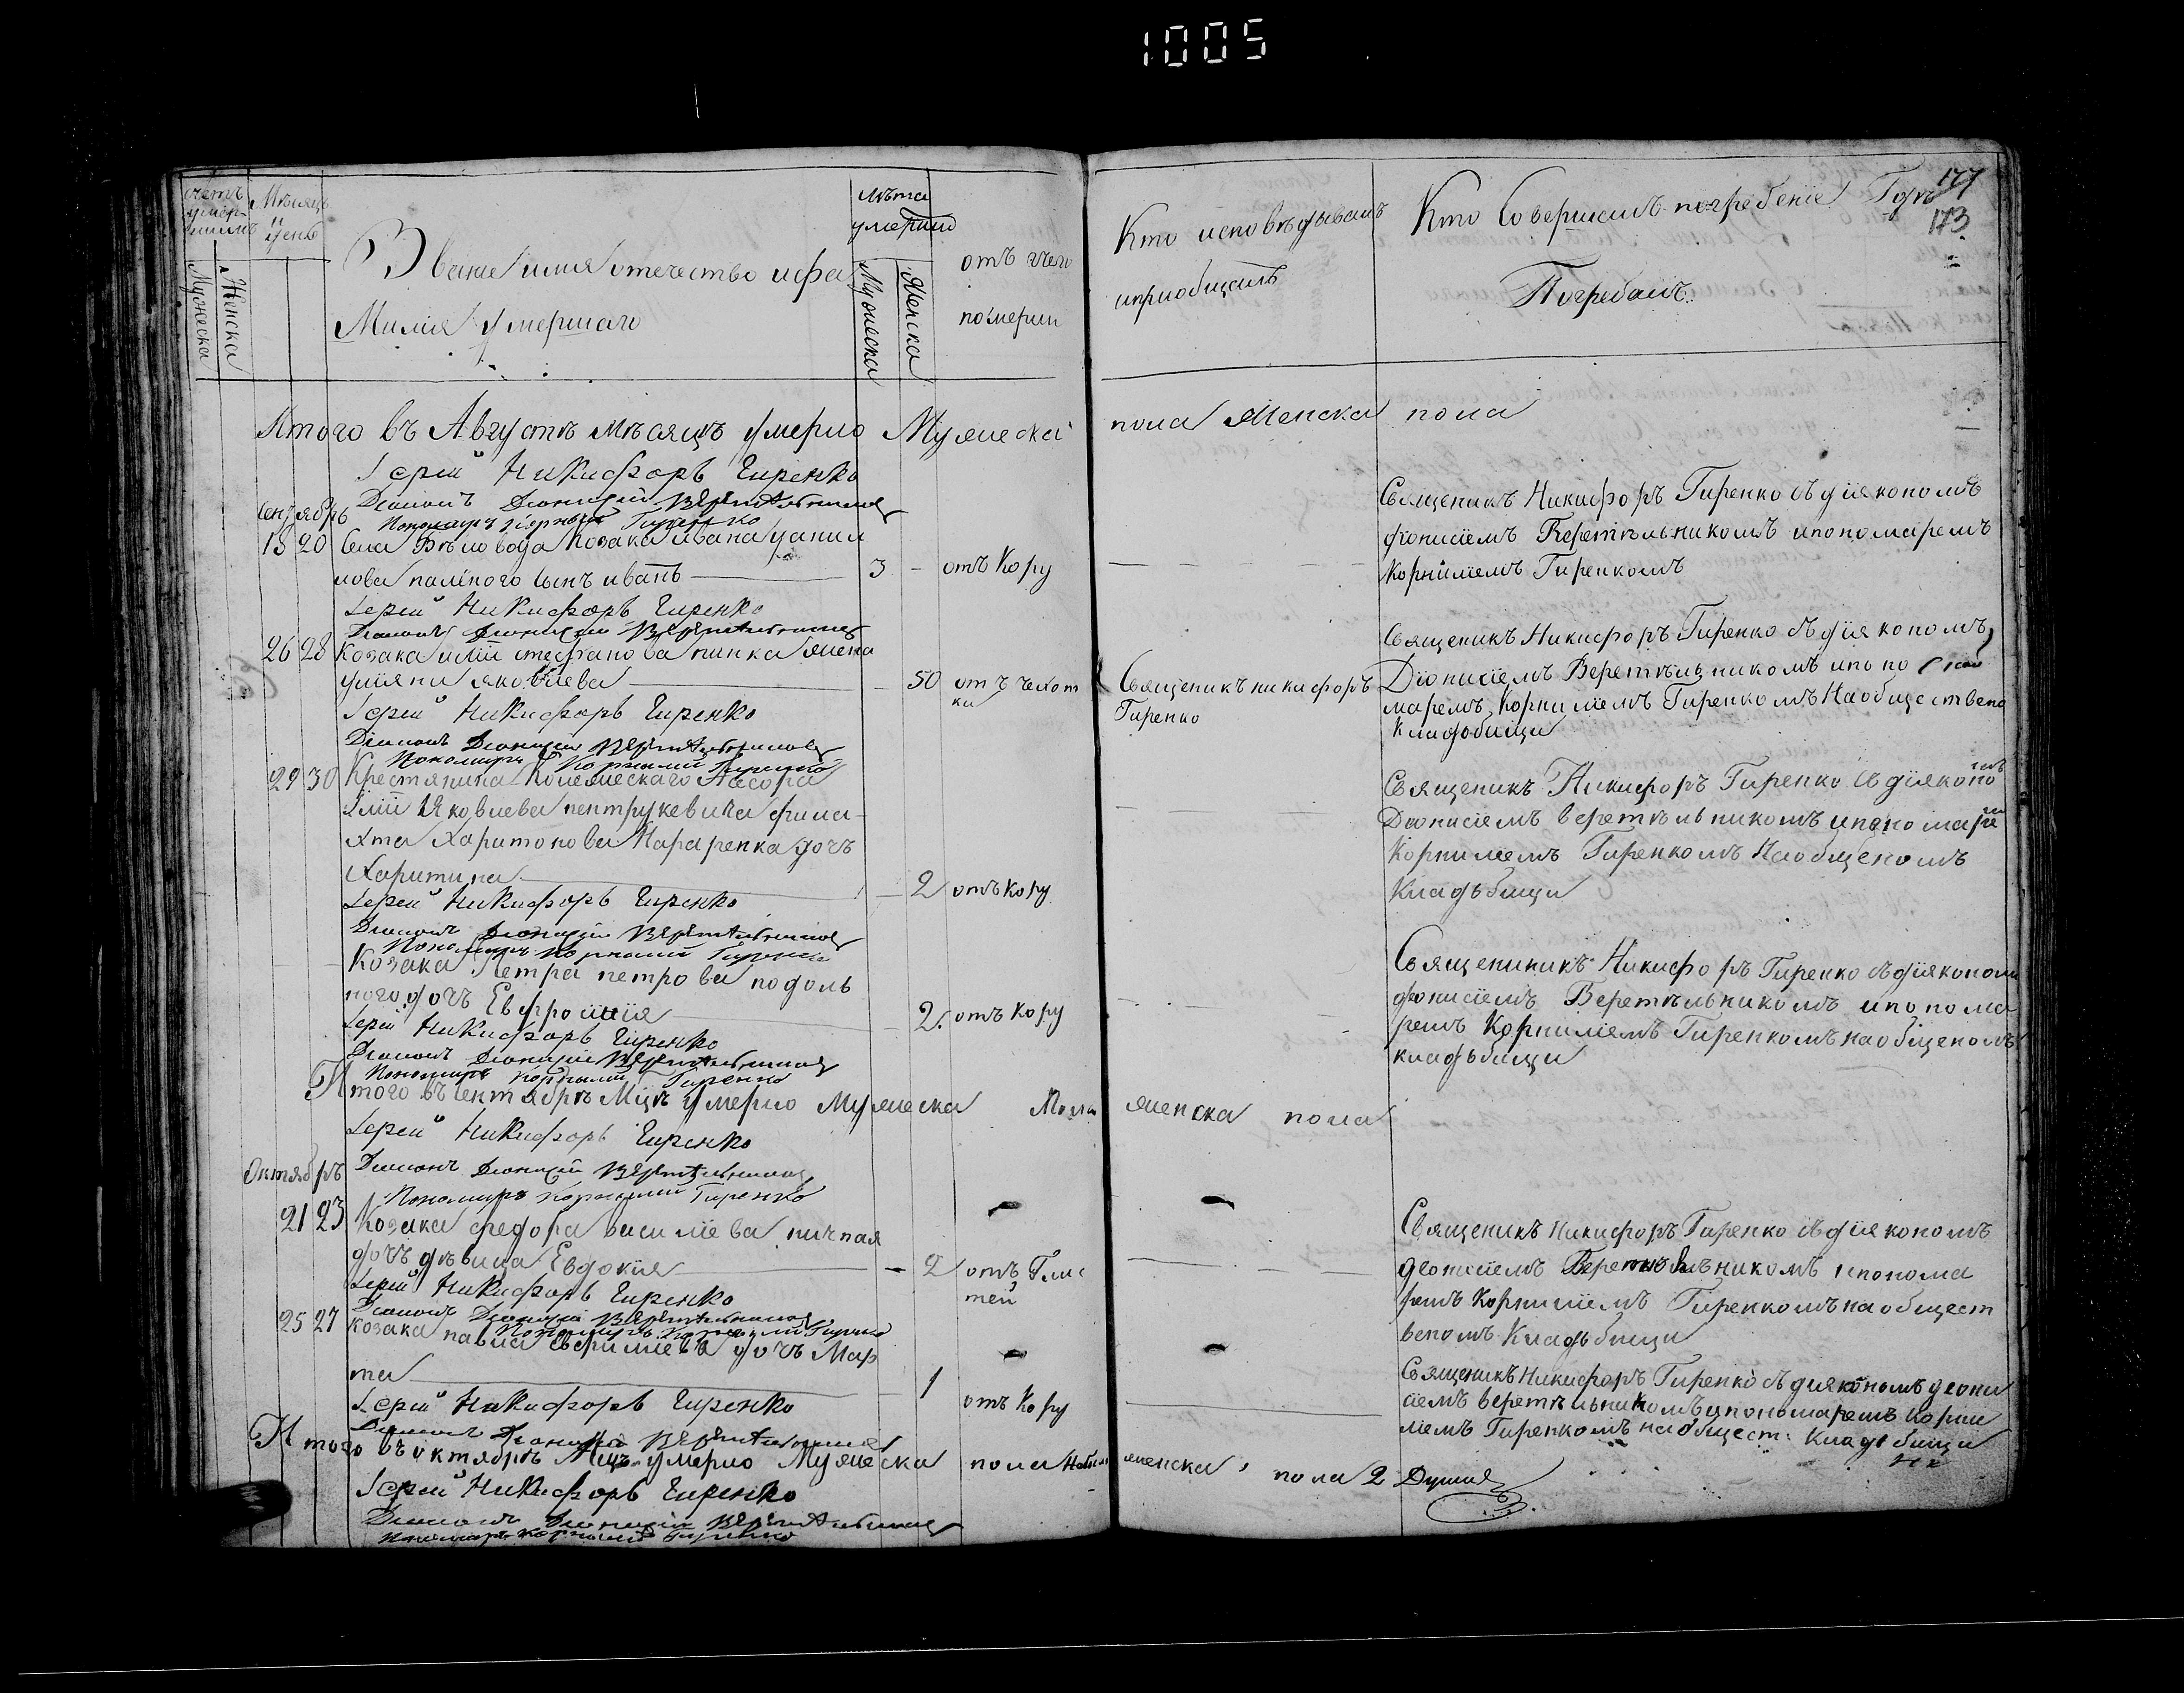 1005
177
173
счетъ умер-шимъ
Мѣсяцъ и день
Мужеска
Женска
Звание имя отечество и фа
милия умершаго
Лѣта умерши
Мужеска
Женска
отъ чего
померли
Кто исповѣдывалъ
и приобщалъ
Кто Совершилъ погребение Гдѣ
Погребенъ
Итого въ Августѣ мѣсяцѣ умерло Мужеска пола женска пола
Іерей Никифоръ Гиренко
Диаконъ Дионисий Веретѣльников
Пономарь Корнилий Гиренко
Сентябрь
18 20 Села Бѣловода Козака Ивана Данил
лова сынъ иванъ 3 - отъ Кору
Священикъ Никифоръ Гиренко съ диякономъ
дионисиемъ Веретѣльникомъ и пономаремъ
Корнилиемъ Гиренкомъ
Іерей Никифоръ Гиренко
Диаконъ Дионисий Веретѣльников
26 28 Козака илии стефанова жена
улияни яковлева 50 отъ чехот
ки
Священикъ никифоръ
Гиренко
Священикъ Никифоръ Гиренко съ диякономъ
Дионисиемъ Веретѣльникомъ и поно
маремъ Корнилиемъ Гиренкомъ На обществено
Кладбищи
Іерей Никифоръ Гиренко
Диаконъ Дионисий Веретѣльников
Пономарь Корнилий Гиренко
29 30 Крестянина Колежскаго Асесора
Илии Яковлева пентрукевича фила-
хта Харитонова дочъ
Харитина 2 отъ кору
Священикъ Никифоръ Гиренко съ дияконо
мъ
Дионисиемъ веретѣльникомъ и пономаре
м
Корнилиемъ Гиренкомъ На общеномъ
Кладъбищи
Іерей Никифоръ Гиренко
Диаконъ Дионисий Веретѣльников
Пономарь Корнилий Гиренко
Козака Петра петрова подоль
ного дочъ Евфросиния 2. отъ кору
Священникъ Никифоръ Гиренко съ дияконом
дионисиемъ Веретѣльникомъ и понома
ремъ Корнилиемъ Гиренкомъ на общеномъ
кладъбищи
Іерей Никифоръ Гиренко
Диаконъ Дионисий Веретѣльников
Пономарь Корнилий Гиренко
Итого въ сентябрѣ Мцѣ умерло Мужеска пола женска пола
Іерей Никифоръ Гиренко
Октябрь
Диаконъ Дионисий Веретѣльников
Пономарь Корнилий Гиренко
21 23 Козака федора василиева
дочъ дѣвица Евдокия - 2 отъ Глис
тей
Священикъ Никифоръ Гиренко съ диякономъ
деонисиемъ Веретѣльникомъ и понома
ремъ Корнилиемъ Гиренкомъ на общест
веномъ Кладъбищи
Іерей Никифоръ Гиренко
Диаконъ Дионисий Веретѣльников
Пономарь Корнилий Гиренко
25 27 козака павла Евфимиева дочъ Мар
та 1 отъ Кору
Священикъ Никифоръ Гиренко съ диякономъ деони
сиемъ веретѣльникомъ и пономаремъ Корни
лиемъ Гиренкомъ на общест: Кладбищи
Іерей Никифоръ Гиренко
Диаконъ Дионисий Веретѣльников
Итого въ октябрѣ Мцѣ умерло Мужеска пола женска пола 2 Душъ
Іерей Никифоръ Гиренко
Диаконъ Дионисий Веретѣльников
Пономарь Корнилий Гиренко